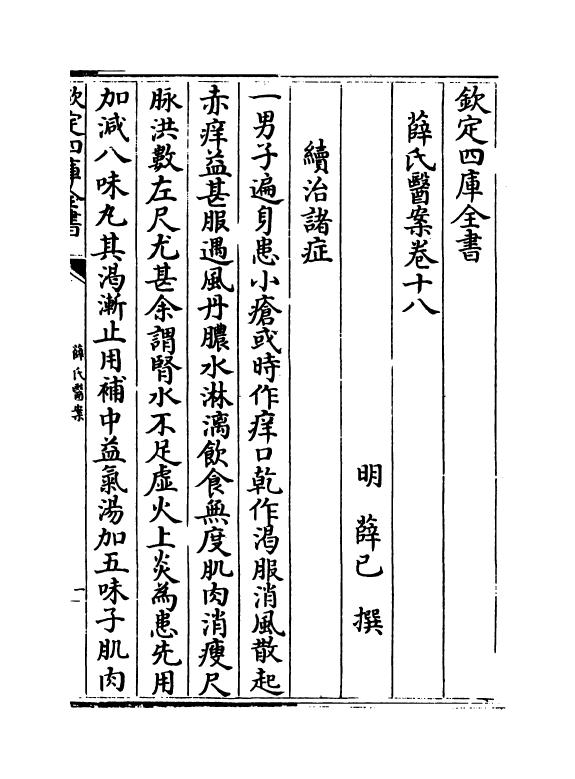 欽定四庫全書
薛氏醫案卷十八
明 薛已 撰
續治諸症
一男子遍身患小瘡或時作痒口乾作渴服消風散起
赤痒益甚服遇風丹膿水淋漓飲食無度肌肉消瘦尺
脉洪數左尺尤甚余謂腎水不足虛火上炎為患先用
加減八味丸其渴漸止用補中益氣湯加五味子肌肉
欽定四庫全書
薛氏醫案
一